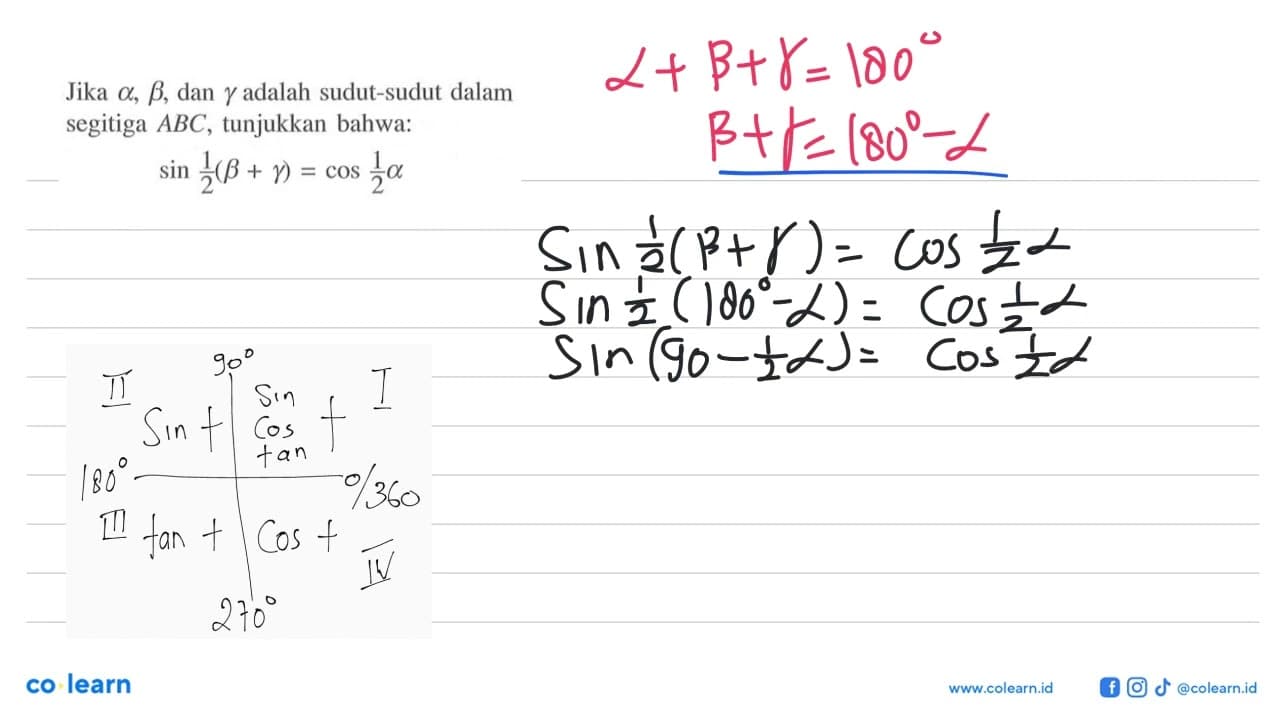 Jika α, β, dan γ adalah sudut-sudut dalam
segitiga ABC, tunjukkan bahwa:
sin 1/2(β + γ) = cos 1/2 α
α + β + γ = 180°
β + γ = 180° - α
Sin 1/2 (β + γ) = Cos 1/2 α
Sin 1/2 (180° - α) = Cos 1/2 α
Sin (90 - 1/2 α) = Cos 1/2 α
90°
II
I
Sin +
Sin
Cos
tan
+
180°
0/360
III
tan +
Cos +
IV
270°
co learn
www.colearn.id
@colearn.id